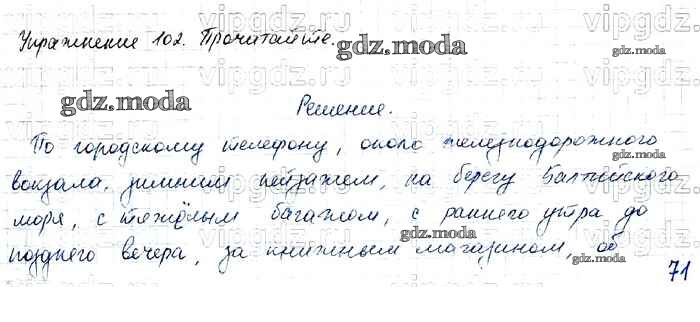 Упражнение 102. Прочитайте.
gdz.moda
gdz.moda
Решение.
По городскому телефону, около железнодорожного
вокзала, зимним пейзажем, на берегу Балтийского
моря, с тяжёлым багажом, с раннего утра до
позднего вечера, за книжным магазином, об
gdz.moda
gdz.moda
gdz.moda
gdz.moda
71